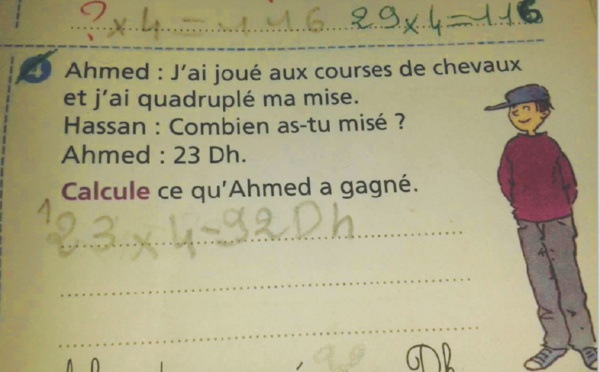 ? x 4 = 116 29 x 4 = 116
4 Ahmed : J'ai joué aux courses de chevaux
et j'ai quadruplé ma mise.
Hassan : Combien as-tu misé ?
Ahmed : 23 Dh.
Calcule ce qu'Ahmed a gagné.
1
23 x 4 = 92 Dh
Dh